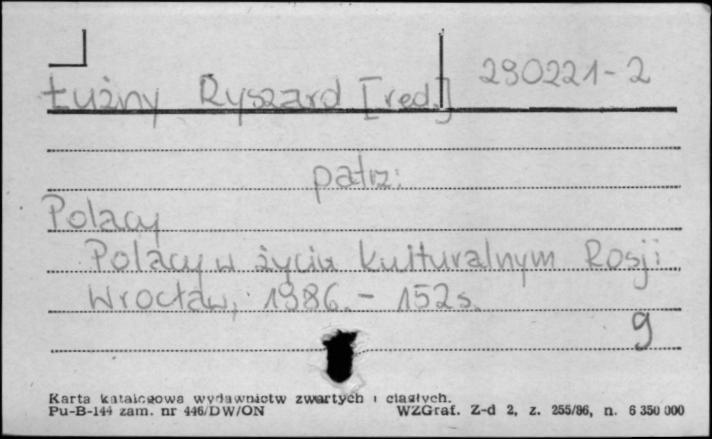 Łużny Ryszard [red.] 290221-2
patrz:
Polacy
Polacy w życiu kulturalnym Rosji
Wrocław, 1986. - 152 s.
9
Karta katalogowa wydawnictw zwartych i ciągłych.
Pu-B-144 zam. nr 446/DW/ON WZGraf. Z-d 2, z. 255/86, n. 6 350 000